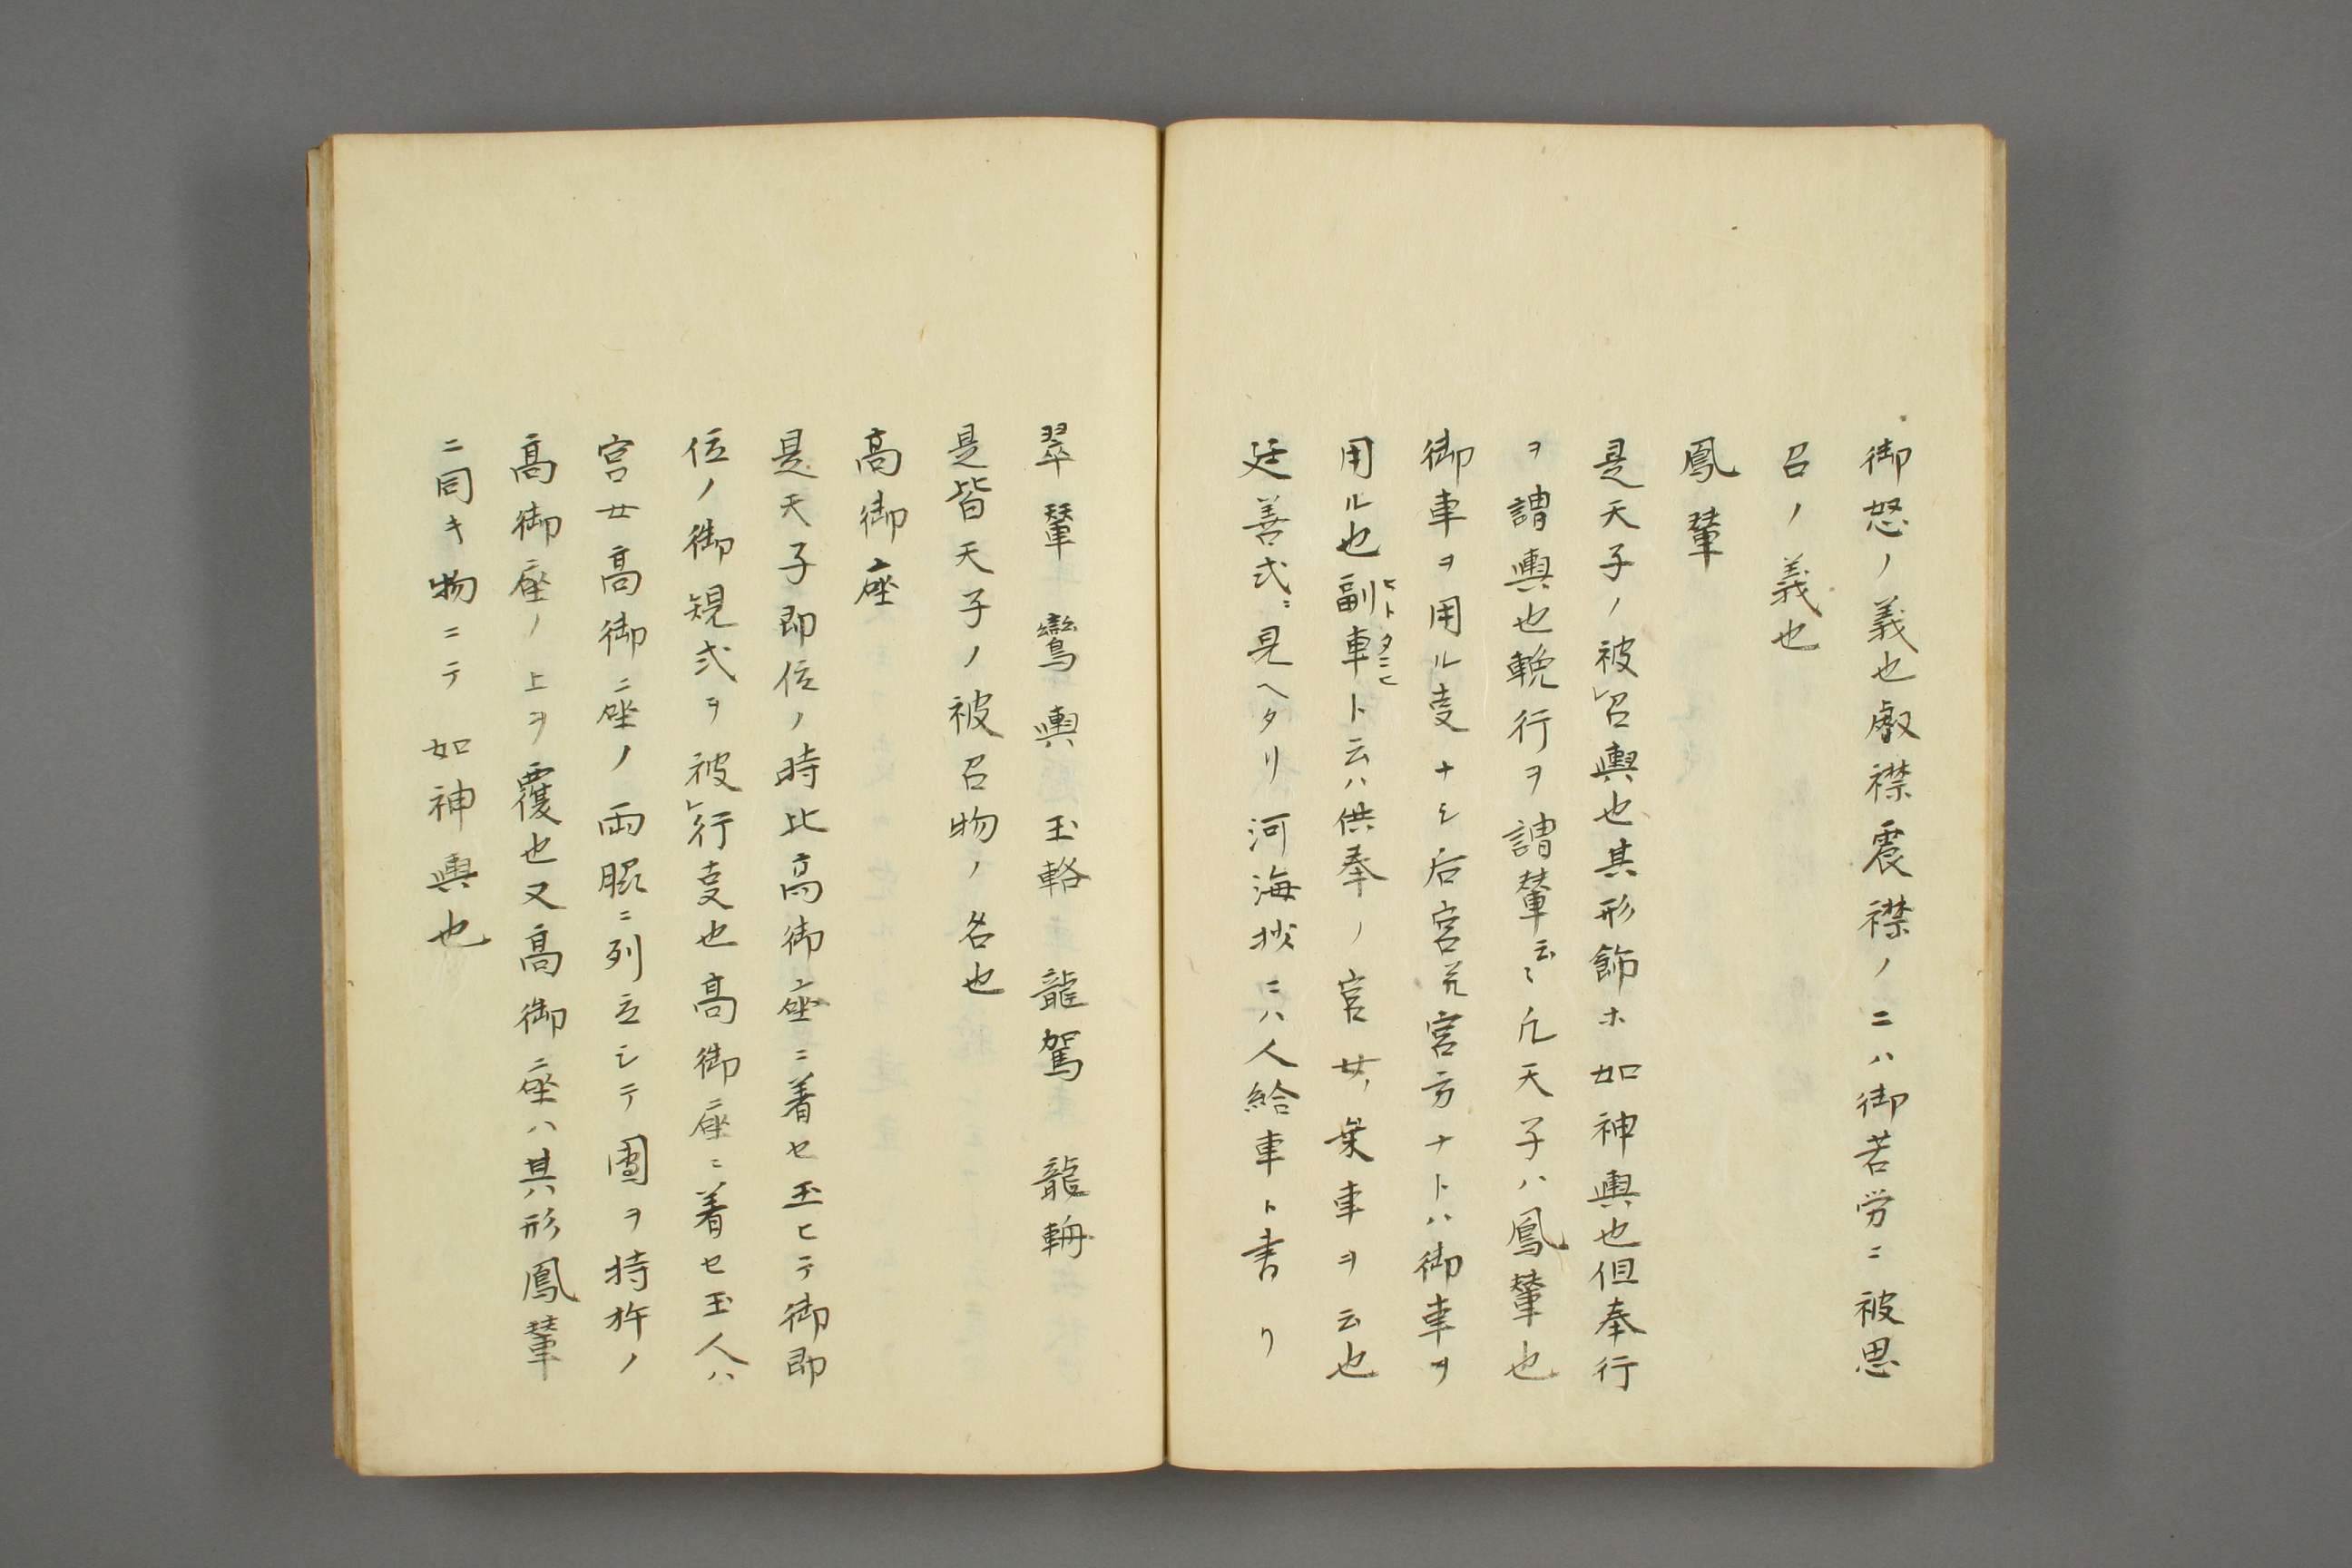 御怒ノ義也叡襟震襟ノ二ハ御苦労ニ被思
召ノ義也
鳳輦
是天子ノ被レ召輿也其形飾ホ如神輿也但奉行
ヲ謂輿也輓行ヲ謂輦云〻凡天子ハ鳳輦也
御車ヲ用ル叓ナシ后宮并宮方ナトハ御車ヲ
用ル也副車ト云ハ供奉ノ官女ノ乗車ヲ云也
ヒトタマヒ
廷善式ニ見ヘタリ河海抄ニハ人給車ト書リ
翠輦 鸞輿 玉輅 龍駕 龍輈
是皆天子ノ被召物ノ名也
高御座
是天子即位ノ時此高御座ニ着セ玉ヒテ御即
位ノ御規式ヲ被レ行叓也高御座ニ着セ玉人ハ
宮女高御座ノ両脇ニ列立シテ團ヲ持
高御座ノ上ヲ覆也又高御座ハ其形鳳輦
ニ同キ物ニテ如神輿也